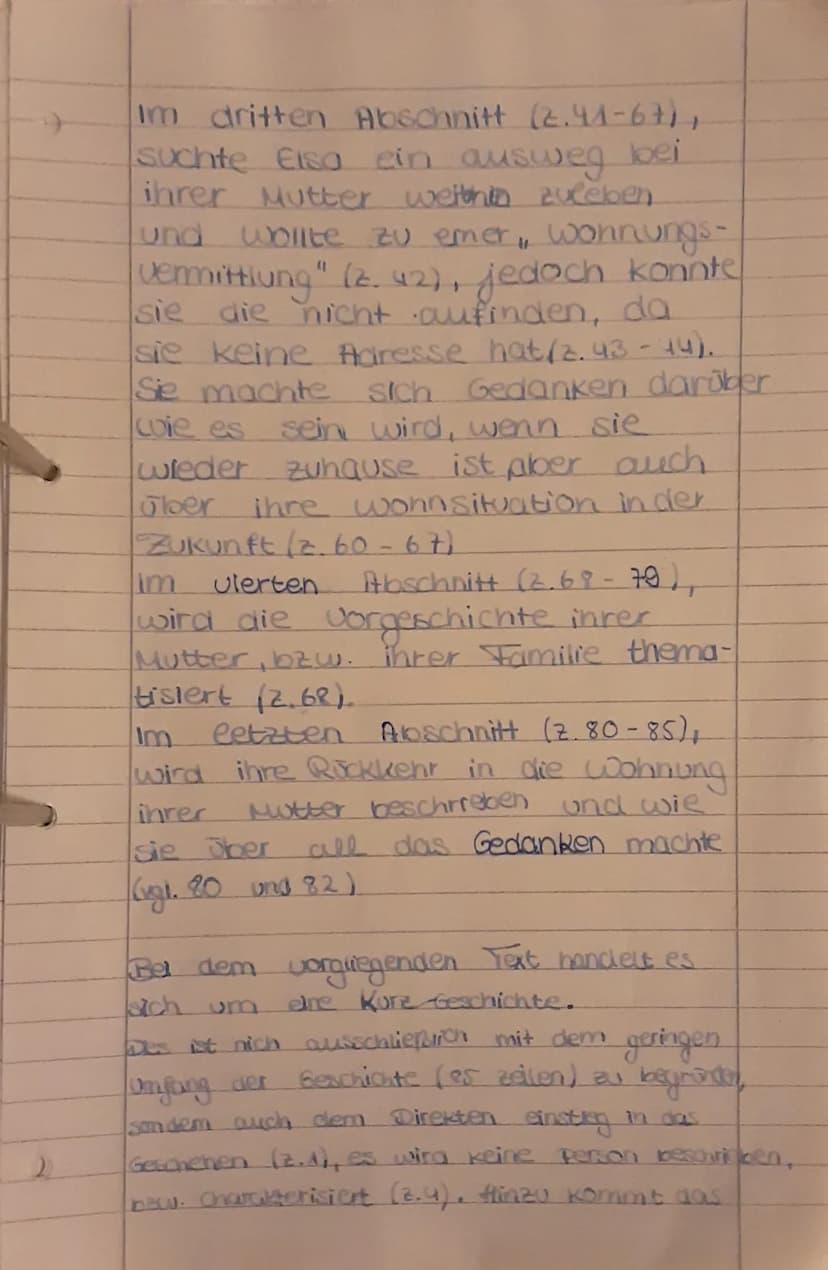 Im dritten Abschnitt (Z.41-67),
suchte Elsa ein ausweg bei
ihrer Mutter weithin zuleben
und wollte zu einer „Wohnungs-
vermittlung" (Z. 42), jedoch konnte
sie die nicht aufinden, da
sie keine Adresse hat(Z. 43 - 44).
Sie machte sich Gedanken darüber
wie es sein wird, wenn sie
wieder zuhause ist aber auch
über ihre wohnsituation in der
Zukunft (Z. 60 - 67)
Im vierten Abschnitt (Z.68 - 79),
wird die Vorgeschichte ihrer
Mutter, bzw. ihrer Familie thema-
tisiert (Z.68).
Im letzten Abschnitt (Z. 80-85),
wird ihre Rückkehr in die Wohnung
ihrer Mutter beschrieben und wie
sie über all das Gedanken machte
(vgl. 80 und 82)
Bei dem vorgliegenden Text handelt es
sich um eine Kurz-Geschichte.
Des ist nich ausschließlich mit dem geringen
Umfang der Geschichte (85 zeilen) zu begründen,
sondern auch dem Direkten einstieg in das
Geschehen (Z.1), es wird keine Person beschrieben,
bzw. Charakterisiert (Z.4). Hinzu kommt das